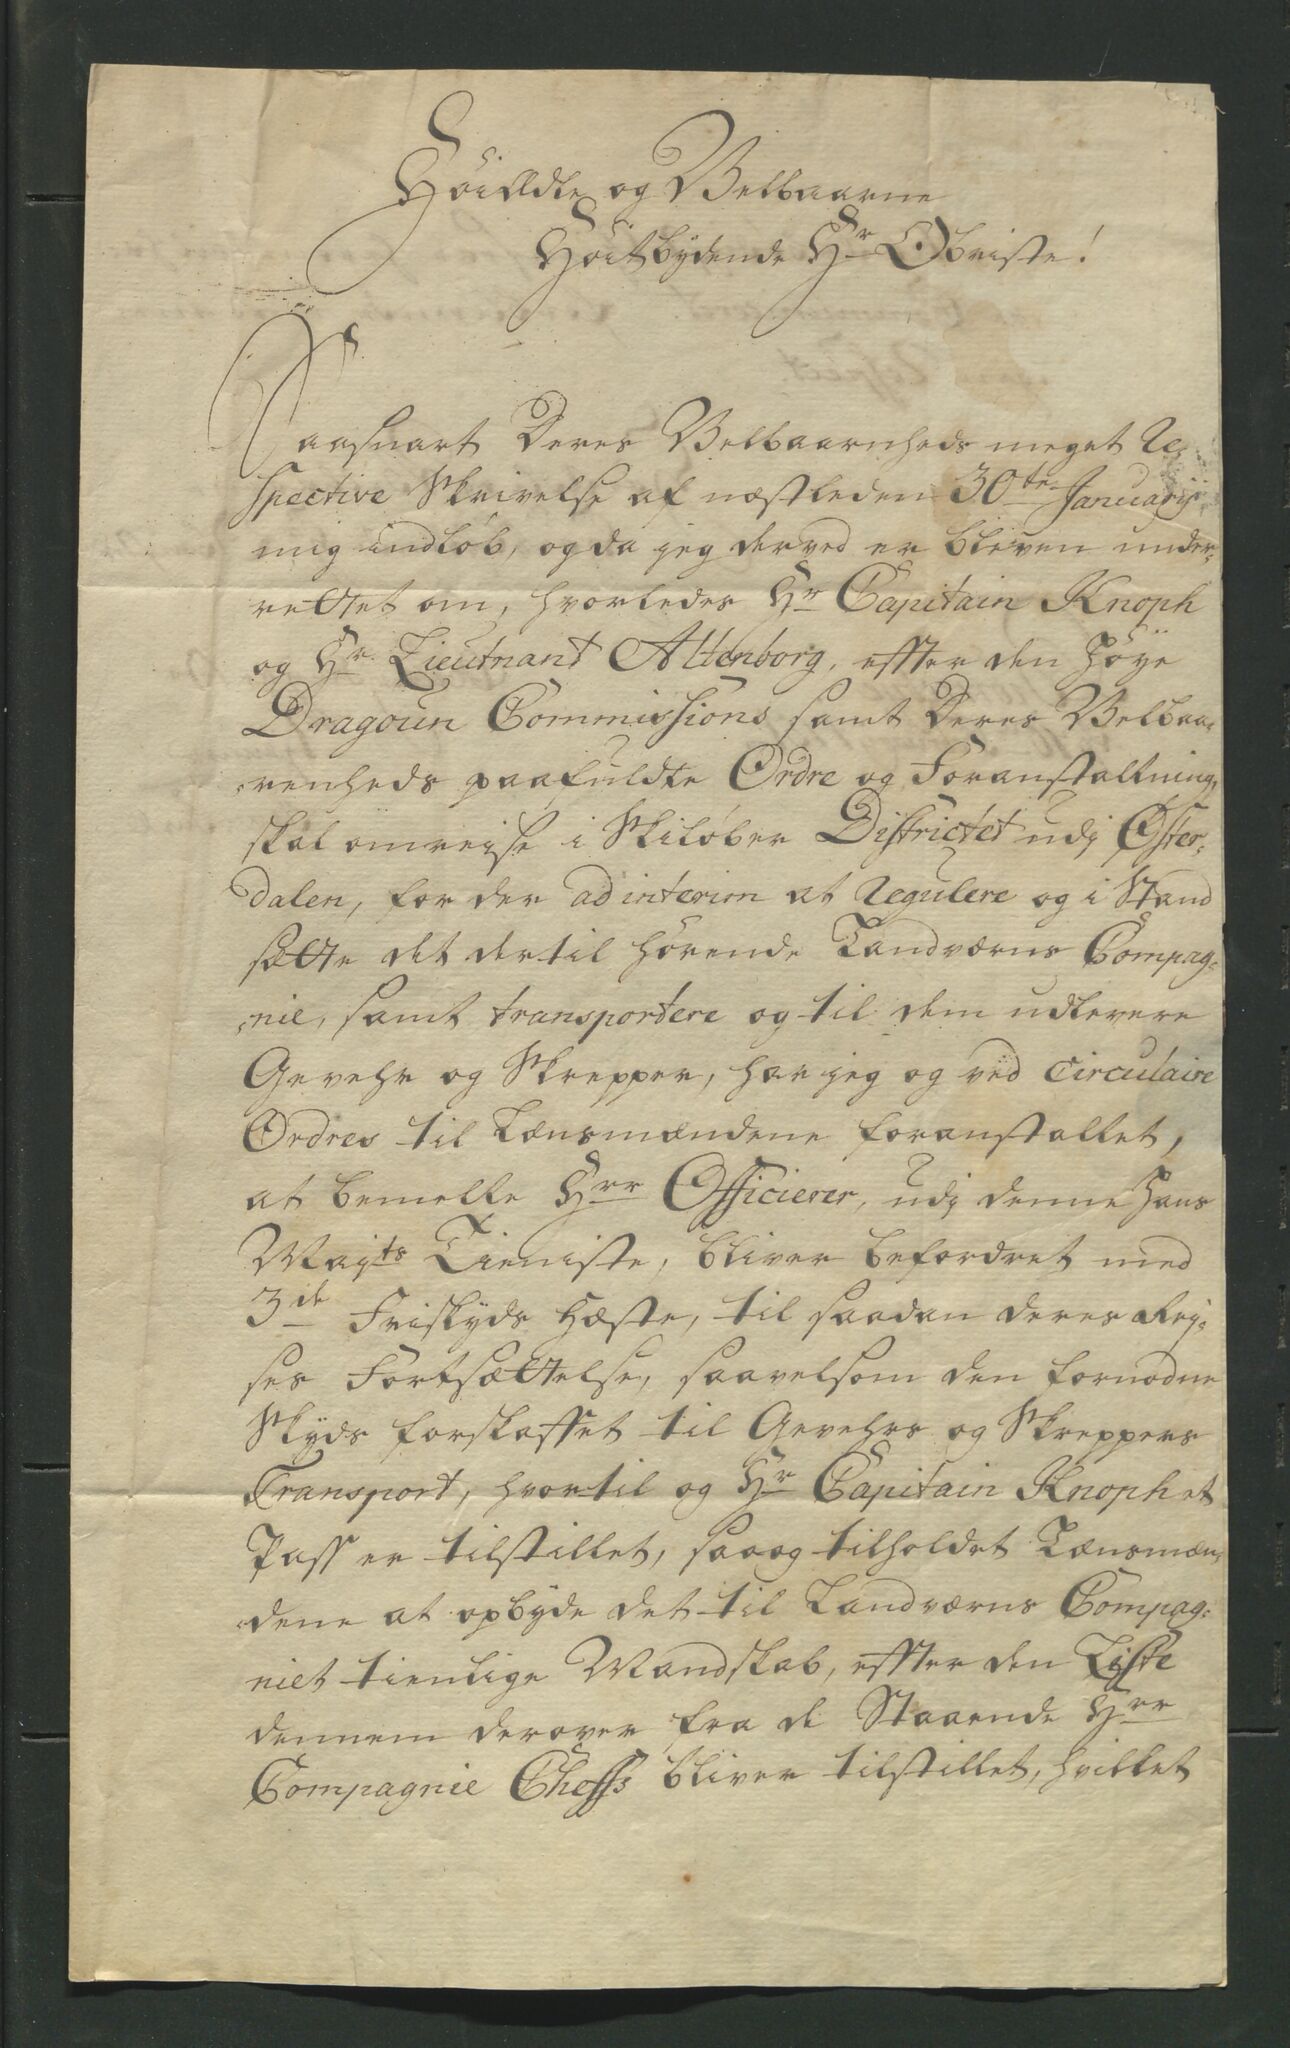 Höiædle og Velbaarne
Höitbydende Hr Obriste!
Saasnart Deres Velbaarnheds meget Re-
spective Skrivelse af næstleden 30te Januarij
mig indlöb, og da jeg derved er bleven under-
rettet om, hvorledes Hr Capitain Knoph
og Hr Lieutnant Altenborg, effter den höye
Dragoun Commissions samt Deres Velbaa-
renheds paafuldte Ordre og Foranstaltning,
skal omreise i Skilöber Districtet udj Öster-
dalen, for der ad interim at Regulere og i Stand
sætte det dertil hörende Landværns Compag-
nie, samt transportere og til dem udlevere
Gevehr og Skrepper, har jeg og ved Circulaire
Ordres til Lænsmændene foranstaltet,
at bemelte Hrr Officierer, udj denne Hans
Majts Tieniste, bliver befordret med
3de Friskyds Hæste, til saadan deres Rej-
ses Fortsættelse, saavelsom den fornödne
Skyds forskaffet til Gevehrs og Skreppers
Transport, hvortil og Hr Capitain Knoph et
Pass er tilstillet, saa og tilholdet Lænsmæn-
dene at opbyde det til Landværns Compag-
niet tienlige Mandskab, effter den Liste
dennem derover fra de Staaende Hrr
Compagnie Cheffs bliver tilstillet, hvilket